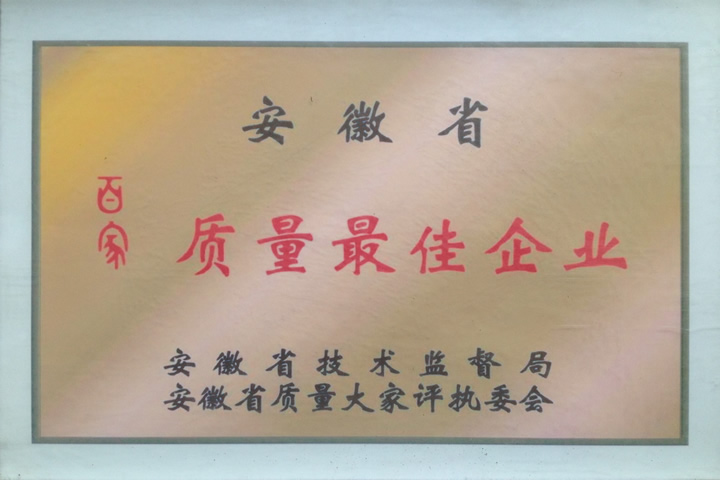 安徽省
百家
质量最佳企业
安徽省技术监督局
安徽省质量大家评执委会